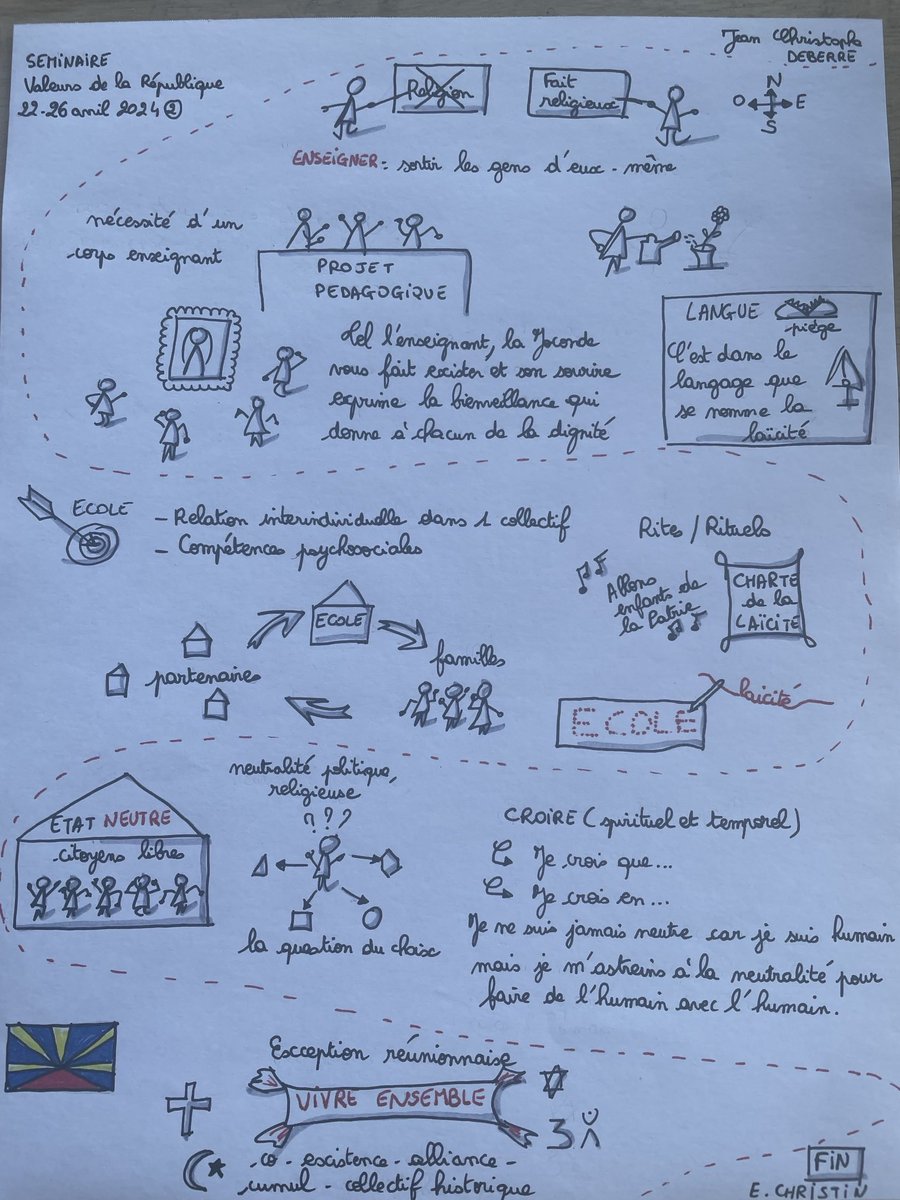 SEMINAIRE
Valeurs de la République
22-26 avril 2024 ②
Jean Christophe
DEBERRE
Religion
Fait
religieux
N
O E
S
ENSEIGNER : sortir les gens d'eux-même
nécessité d'un
corps enseignant
PROJET
PEDAGOGIQUE
Tel l'enseignant, la Joconde
vous fait exister et son sourire
exprime la bienveillance qui
donne à chacun de la dignité
LANGUE
piège
C'est dans le
langage que
se nomme la
laïcité
ECOLE
- Relation interindividuelle dans 1 collectif
- Compétences psychosociales
Rites / Rituels
Allons
enfants de
la Patrie
CHARTE
de la
LAÏCITE
ECOLE
partenaires
familles
laïcité
ECOLE
ETAT NEUTRE
citoyens libres
neutralité politique,
religieuse
???
la question du choix
CROIRE (spirituel et temporel)
Je crois que...
Je crois en...
Je ne suis jamais neutre car je suis humain
mais je m'astreins à la neutralité pour
faire de l'humain avec l'humain.
Exception réunionnaise
VIVRE ENSEMBLE
co-existence-alliance-
cumul-collectif historique
FIN
E. CHRISTIN